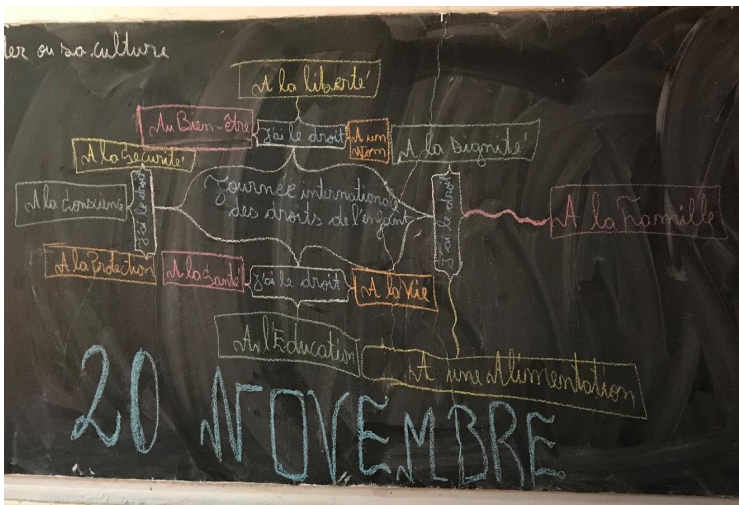 ter ou sa culture
A la liberté
Au Bien-être
J'ai le droit
A un
Nom
A la Dignité
A la Sécurité
J'ai le droit
A la Conscience
Journée internationale
des droits de l'enfant
J'ai le droit
A la Famille
A la Protection
A la Santé
J'ai le droit
A la Vie
A l'Éducation
A une Alimentation
20 NOVEMBRE